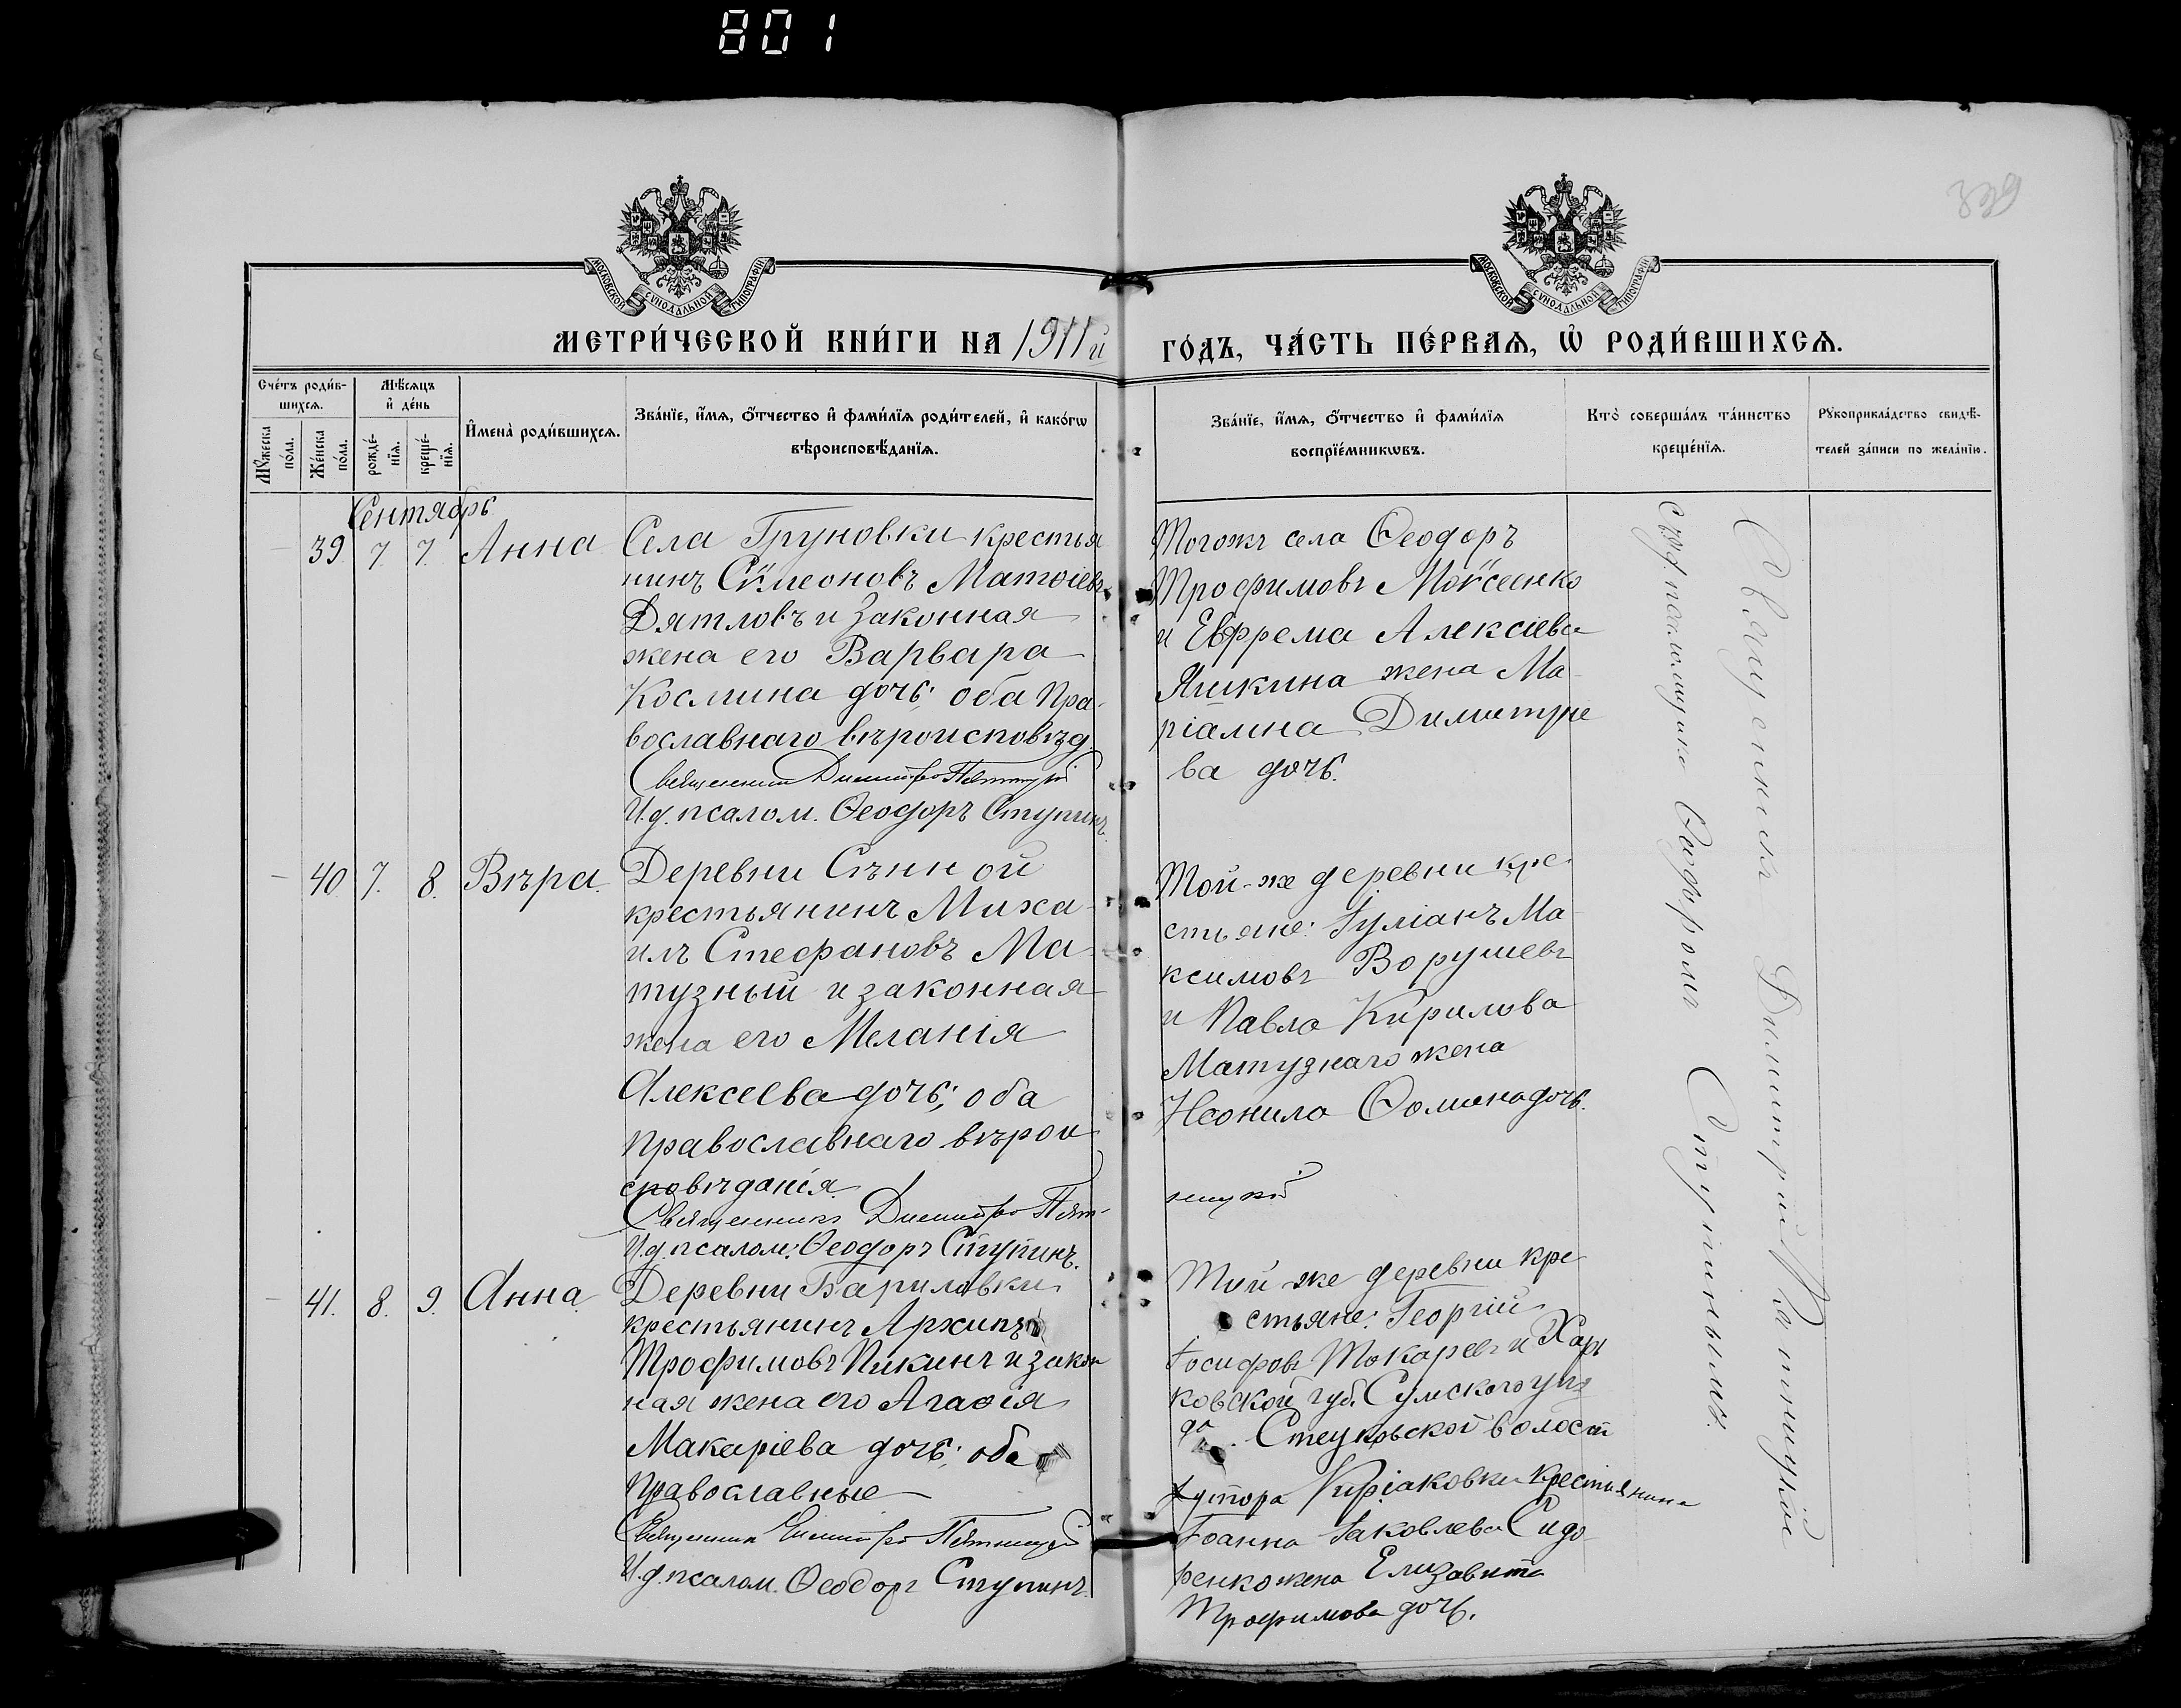 801
339
МОСКОВСКОЙ СѴНОДАЛЬНОЙ ТИПОГРАФІИ
МОСКОВСКОЙ СѴНОДАЛЬНОЙ ТИПОГРАФІИ
МЕТРИ́ЧЕСКОЙ КНИ́ГИ НА 1911 й
ГО́ДЪ, ЧА́СТЬ ПЕ́РВАѦ, Ѽ РОДИ́ВШИХСѦ.
Сче́тъ роди́в-
шихсѧ.
Мѣ́сѧцъ
и҆ де́нь
Мꙋ́жеска по́ла.
Же́нска по́ла.
рожде́-нїѧ.
креще́-нїѧ.
И҆мена̀ роди́вшихсѧ.
Зва́нїе, и҆́мѧ, ѻ҆́тчество и҆ фами́лїѧ роди́телей, и҆ како́гѡ
вѣроисповѣ́данїѧ.
Зва́нїе, и҆́мѧ, ѻ҆́тчество и҆ фами́лїѧ
воспрїе́мникѡвъ.
Кто̀ соверша́лъ та́инство
креще́нїѧ.
Рꙋкоприкла́дство свидѣ́-
телей за́писи по жела́нїю.
Сентябрь
39 7. 7. Анна
Села Груновки крестья
нинъ Сѷмеоновъ Матѳіевъ
Дятловъ и законная
жена его Варвара
Космина дочь; оба пра-
вославнаго вѣроисповѣд.
Священникъ Димитрій Пятницкій
И.д. псалом. Ѳеодоръ Ступинъ.
Тогожъ села Ѳеодоръ
Трофимовъ Моѷсеенко
и Ефрема Алексіева
Яшкина жена Ма-
ріамна Димитріе
ва дочь.
40 7. 8. Вѣра.
Деревни Сѣнной
крестьянинъ Миха-
илъ Стефановъ Ма-
тузный и законная
жена его Меланія
Алексеева дочь; оба
православнаго вѣрои
сповѣданія.
Священникъ Димитрій Пят-
ницкій
И.д. псалом. Ѳеодоръ Ступинъ.
Той-же деревни кре-
стьяне: Іуліанъ Ма-
ксимовъ Ворушевъ
и Павла Кирилова
Матузнаго жена
Неонила Ѳомина дочь.
41. 8. 9. Анна.
Деревни Бариловки
крестьянинъ Архипъ
Трофимовъ Пикинъ и закон
ная жена его Агаѳія
Макаріева дочь; оба
православные
Священникъ Димитрій Пятницкій
И.д. псалом. Ѳеодоръ Ступинъ.
Той же деревни кре
стьяне: Георгій
Іосифовъ Токаревъ и Харь
ковской губ. Сумского уѣз
да. Стецковской волост
хутора Киріаковки крестьянина
Іоанна Іаковлева Сидо-
ренко жена Елизавета
Трофимова дочь.
Священникъ Димитрій Пятницкій
съ и.д. псаломщика Ѳеодоромъ Ступинымъ.